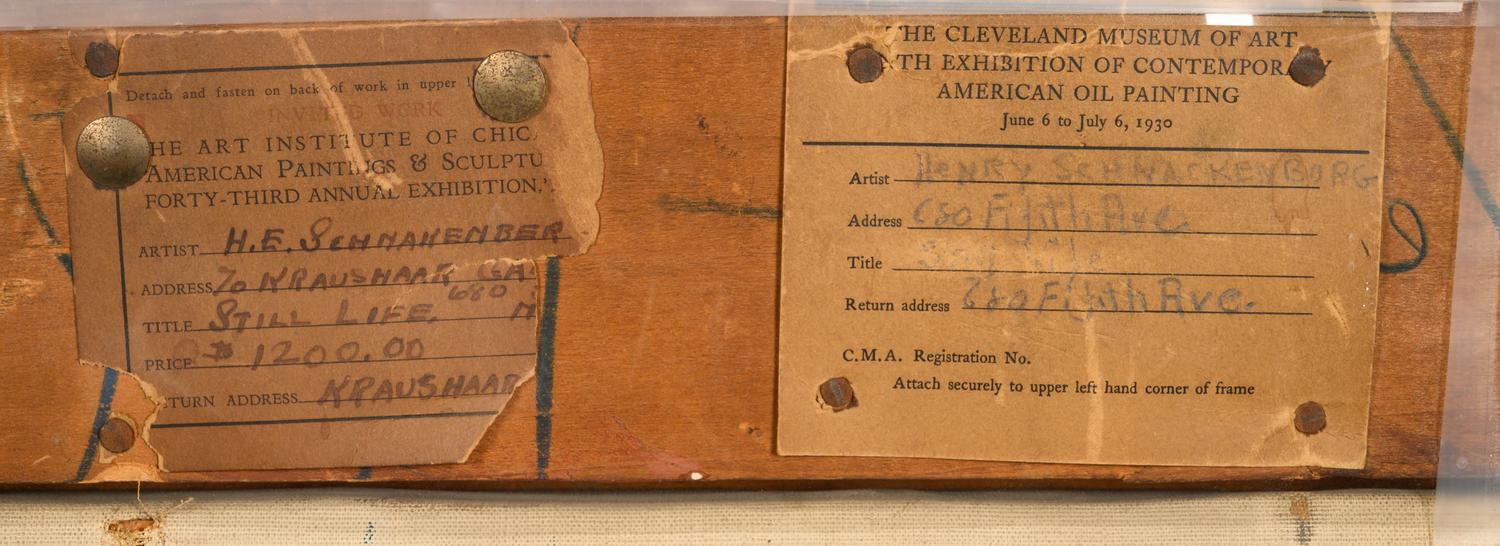 Detach and fasten on back of work in upper
INVITED WORK
HE ART INSTITUTE OF CHIC
AMERICAN PAINTINGS & SCULPTU
FORTY-THIRD ANNUAL EXHIBITION.
ARTIST H.E. SCHNAKENBER
ADDRESS % KRAUSHAAR GA
680
TITLE STILL LIFE. N
PRICE $ 1200.00
TURN ADDRESS KRAUSHAAR
THE CLEVELAND MUSEUM OF ART
TH EXHIBITION OF CONTEMPORARY
AMERICAN OIL PAINTING
June 6 to July 6, 1930
Artist HENRY SCHNACKENBORG
Address 680 Fifth Ave.
Title Still Life
Return address 680 Fifth Ave.
C.M.A. Registration No.
Attach securely to upper left hand corner of frame